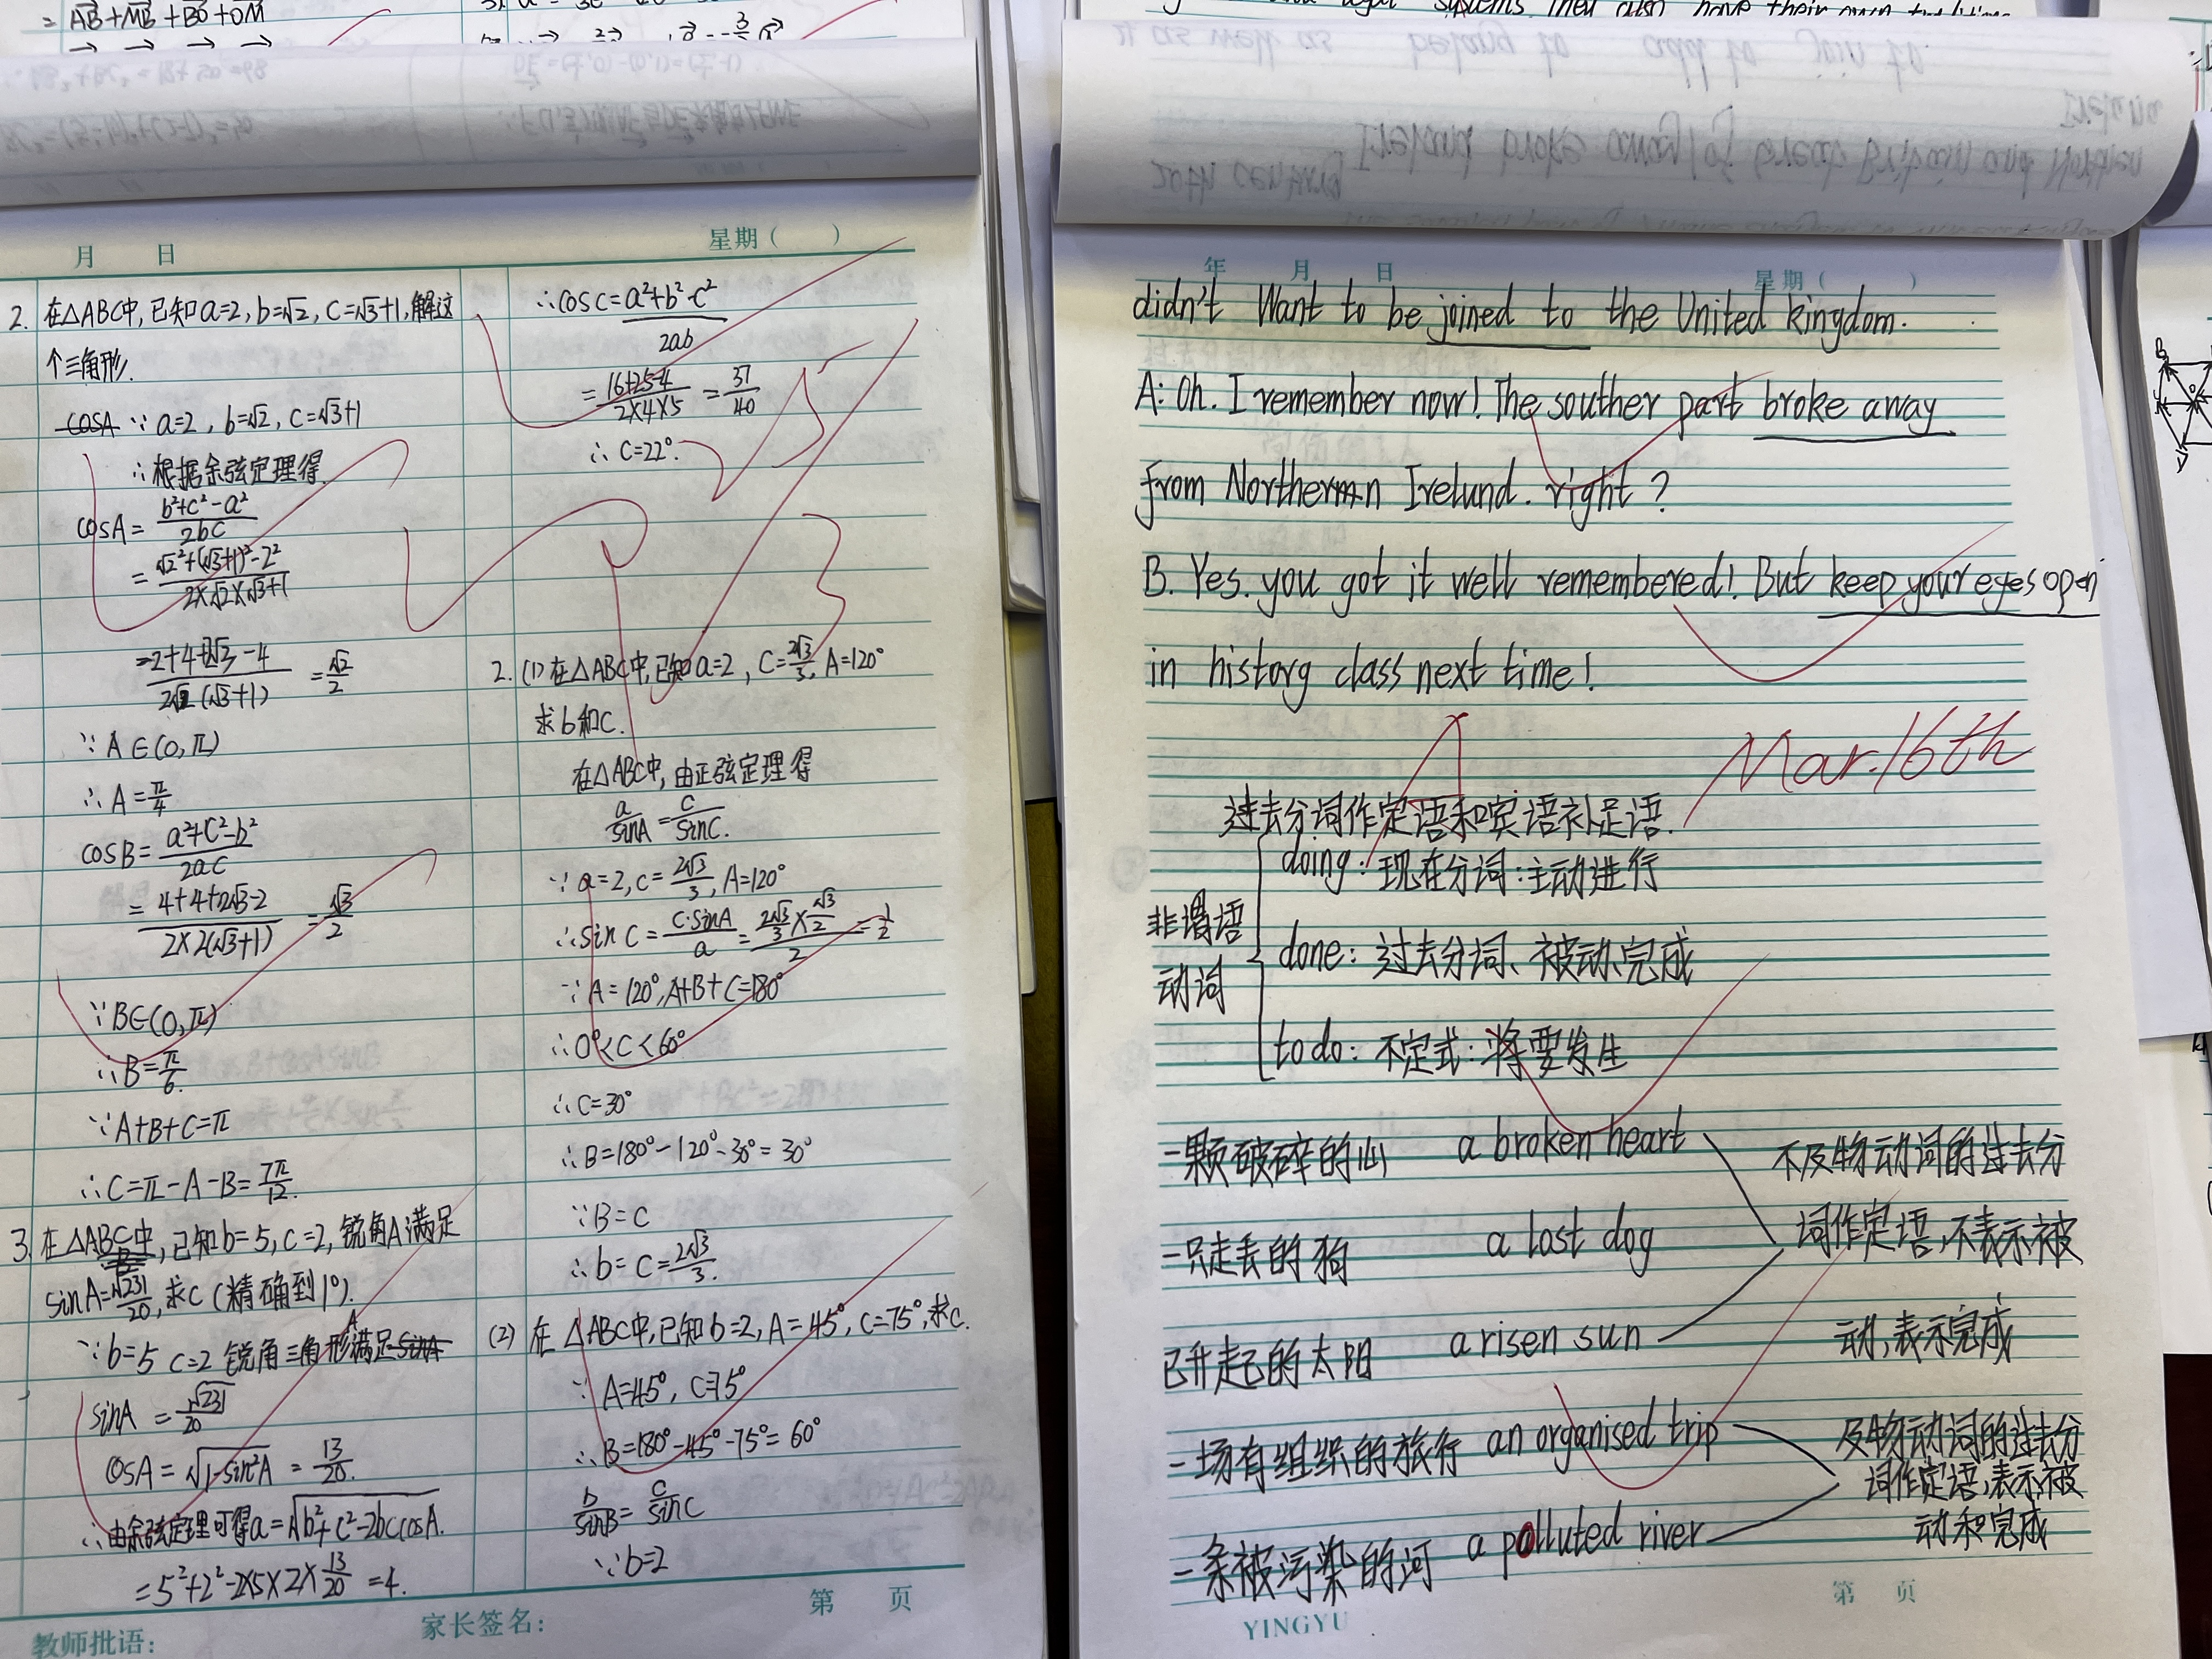 = AB + MB + BO + OM
月 日 星期( )
2. 在△ABC中,已知a=2,b=√2,C=√3+1,解这
个三角形.
∵ a=2,b=√2,C=√3+1
∴根据余弦定理得
cosA= (b²+c²-a²)/(2bC)
= (√2²+(√3+1)²-2²)/(2×√2×√3+1)
= (2+4+2√3-4)/(2√2(√3+1)) = √2/2
∵ A∈(0,π)
∴ A=π/4
cosB= (a²+C²-b²)/(2aC)
= (4+4+2√3-2)/(2×2(√3+1)) = √3/2
∵B∈(0,π)
∴B=π/6.
∵A+B+C=π
∴C=π-A-B=7π/12.
3. 在△ABC中,已知b=5,c=2,锐角A满足
sinA=√231/20,求C(精确到1°).
∵b=5 c=2 锐角三角形A满足
sinA = √231/20
cosA = √(1-sin²A) = 13/20.
∴由余弦定理可得a=√(b²+c²-2bccosA).
=5²+2²-2×5×2×13/20 =4.
∴cosC= (a²+b²-c²)/(2ab)
= (16+25-4)/(2×4×5) = 37/40
∴C=22°.
2. (1)在△ABC中,已知a=2,C=2√3/3,A=120°
求b和C.
在△ABC中,由正弦定理得
a/sinA = c/sinC.
∵a=2,c=2√3/3,A=120°
∴sinC= (c·sinA)/a = (2√3/3×√3/2)/2 = 1/2
∵A=120°,A+B+C=180°
∴0°<C<60°
∴C=30°
∴B=180°-120°-30°=30°
∵B=C
∴b=C=2√3/3.
(2) 在△ABC中,已知b=2,A=45°,C=75°,求c.
∵A=45°,C=75°
∴B=180°-45°-75°=60°
b/sinB = c/sinC
∵b=2
第 页
教师批语: 家长签名:
年 月 日 星期( )
didn't Want to be joined to the United kingdom.
A: Oh. I remember now! The souther part broke away
from Northern Irelund. right?
B. Yes. you got it well remembered! But keep your eyes open
in history class next time!
Mar.16th
过去分词作定语和宾语补足语.
非谓语
动词
doing:现在分词:主动进行
done: 过去分词、被动、完成
to do: 不定式:将要发生
一颗破碎的心 a broken heart
一只走丢的狗 a lost dog
已升起的太阳 a risen sun
不及物动词的过去分
词作定语,不表示被
动,表示完成
一场有组织的旅行 an organised trip
一条被污染的河 a polluted river
及物动词的过去分
词作定语,表示被
动和完成
第 页
YINGYU